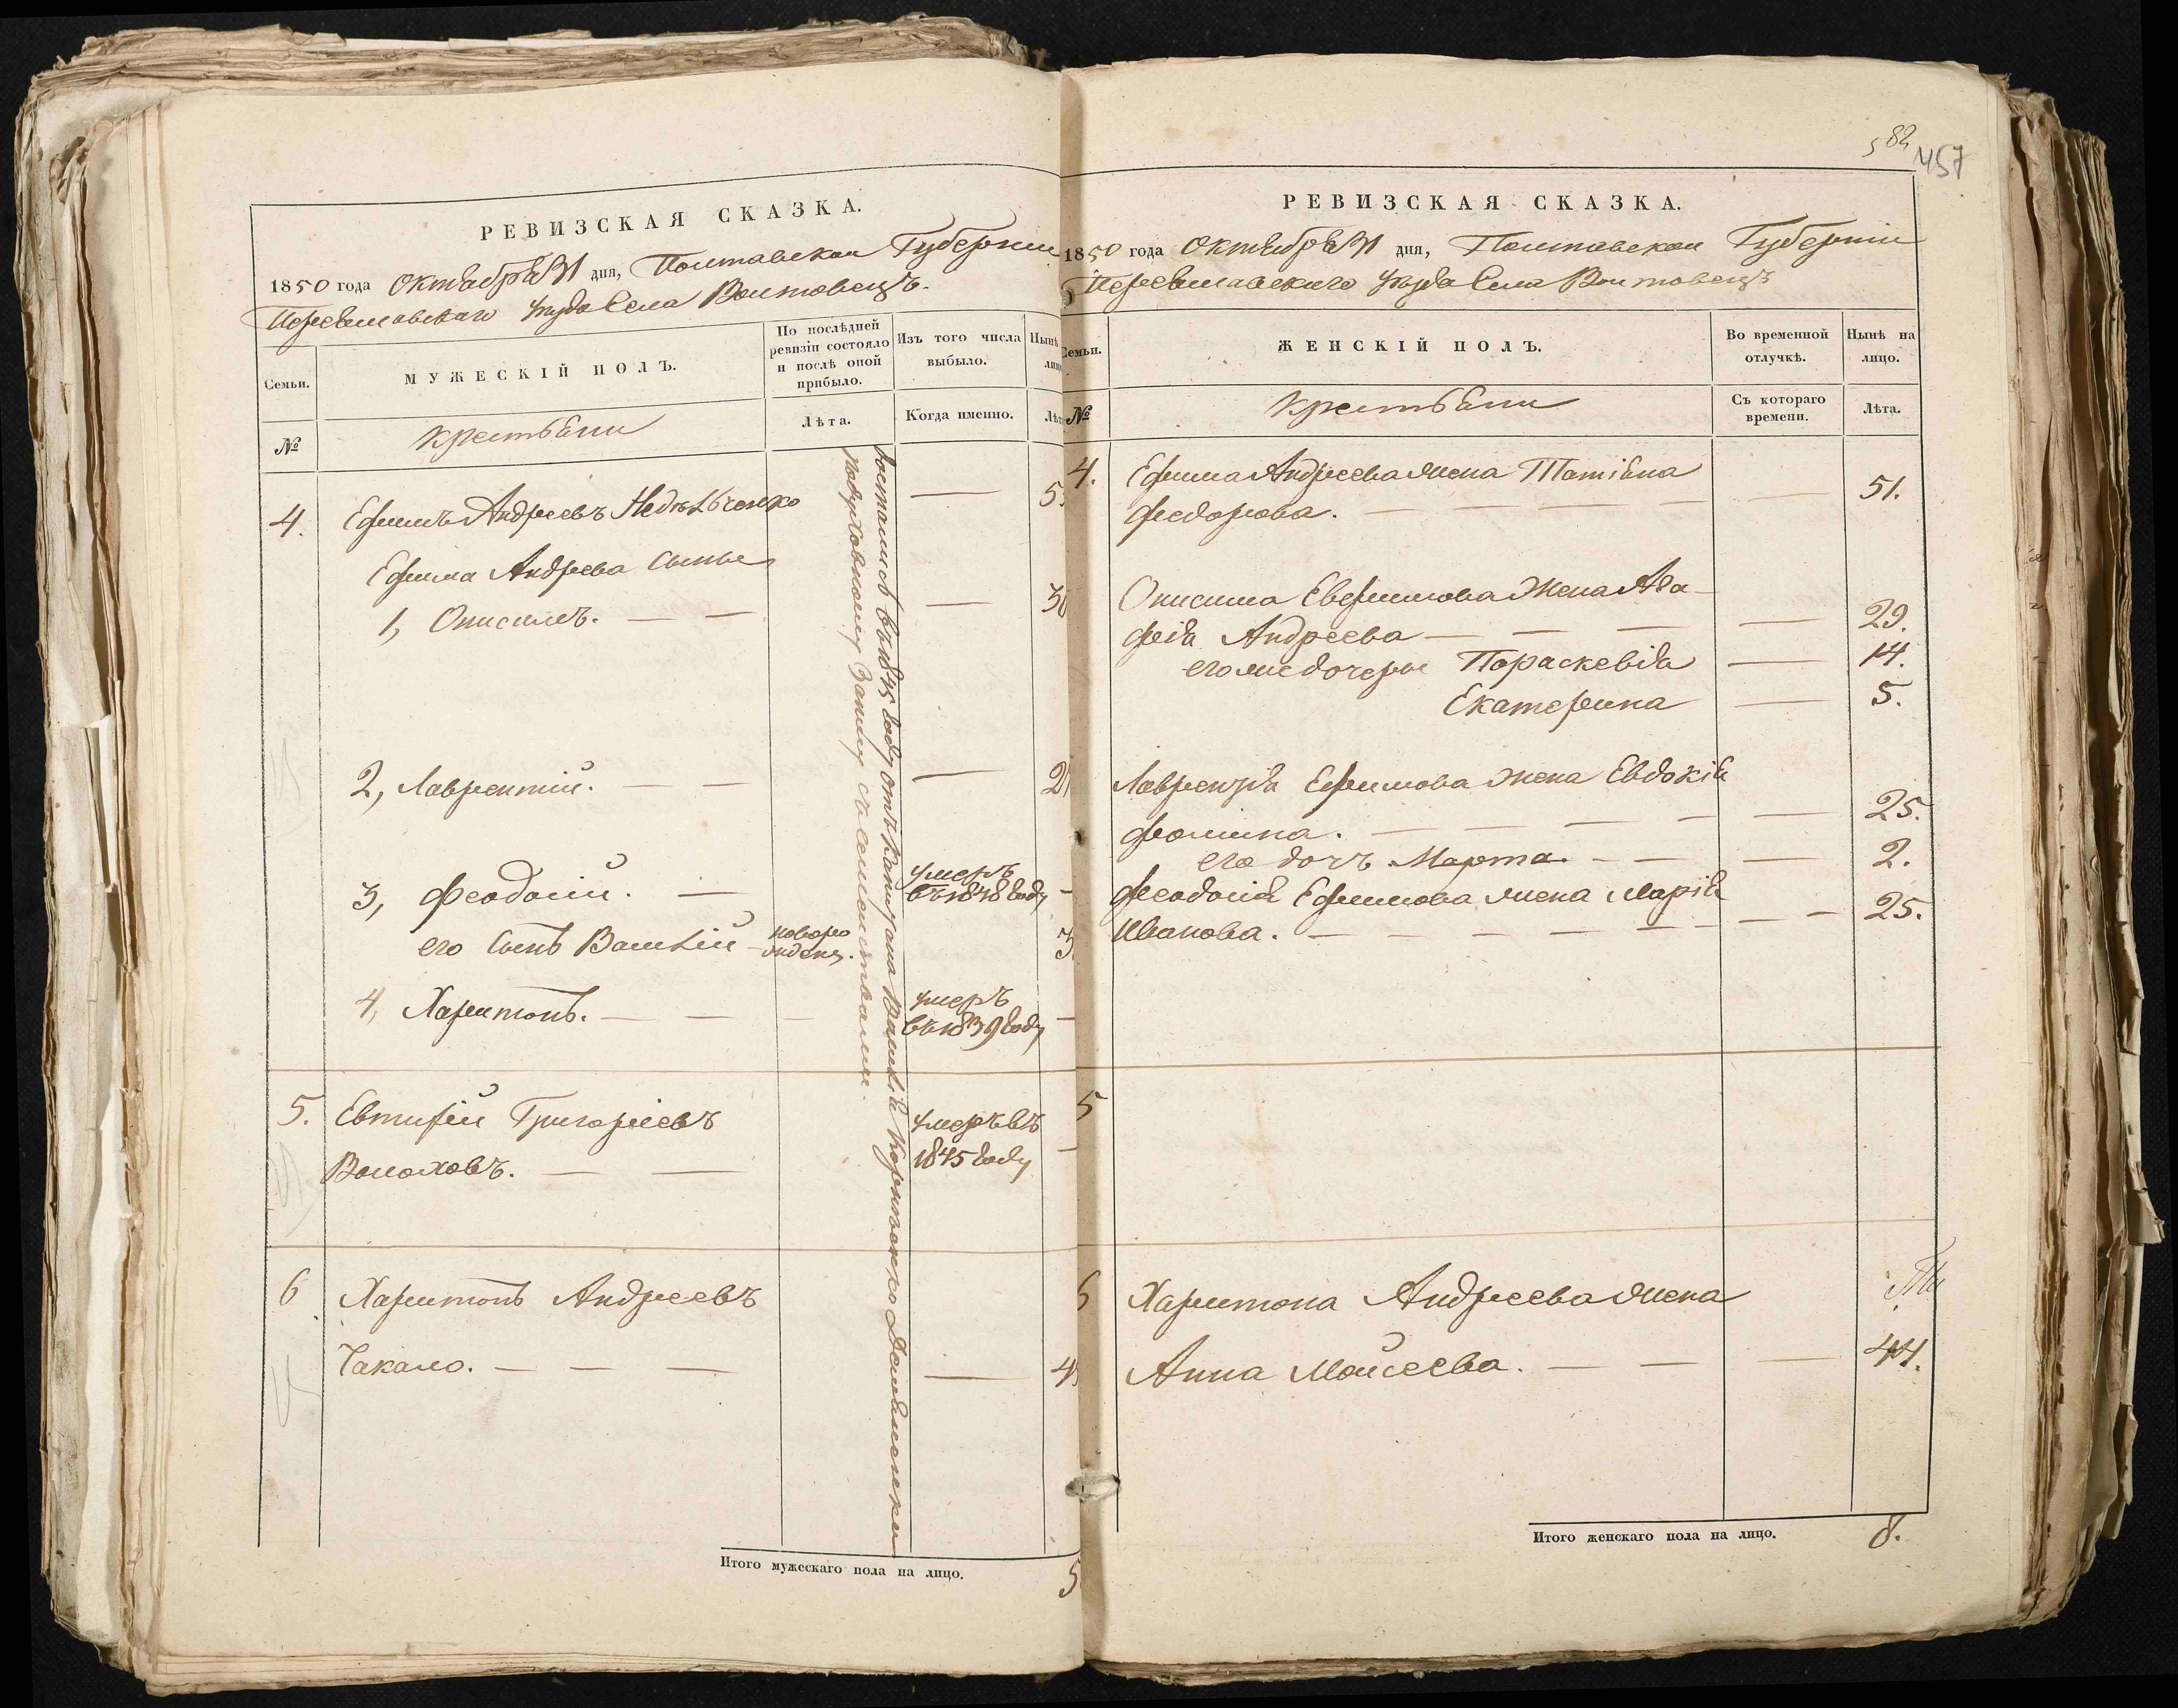 РЕВИЗСКАЯ СКАЗКА.
1850 года Октября 31 дня, Полтавской Губернии
Переяславскаго уезда Села Воитовецъ.
Семьи.
МУЖЕСКІЙ ПОЛЪ.
По послѣдней ревизіи состояло и послѣ оной прибыло.
Изъ того числа выбыло.
Нынѣ
№
крестьяни
Лѣта.
Когда именно.
достались въ 1845 году отъ Капитана Василія
по духовному
4. Ефимъ Андреевъ
Ефима Андреева Сынья
1, Онисимъ.
2, Лаврентій.
3, Феодосій. умеръ въ 1848 году
его Сынъ Василій новорожденъ.
4, Харитонъ. умеръ въ 1839 году
5. Евтифій Григоріевъ умеръ въ
Волоховъ. 1845 году
6 Харитонъ Андреевъ
Чакало.
Итого мужескаго пола на лицо.
582
457
РЕВИЗСКАЯ СКАЗКА.
1850 года Октября 31 дня, Полтавской Губерніи
Переяславскаго уезда Села Воитовецъ
Семьи.
ЖЕНСКІЙ ПОЛЪ.
Во временной отлучкѣ.
Нынѣ на лицо.
№
крестьяни
Съ котораго времени.
Лѣта.
4. Ефима Андреева жена Татіяна
Федорова. 51.
Онисима Евфимова Жена Ага
фія Андреева 29.
его же дочеры Параскевія 14.
Екатерина 5.
Лаврентія Ефимова жена Евдокія
Фомина. 25.
его дочъ Марта. 2.
Феодосія Ефимова жена Марія
Иванова. 25.
5
6 Харитона Андреева жена
Анна Моисеева. 44.
Итого женскаго пола на лицо. 8.